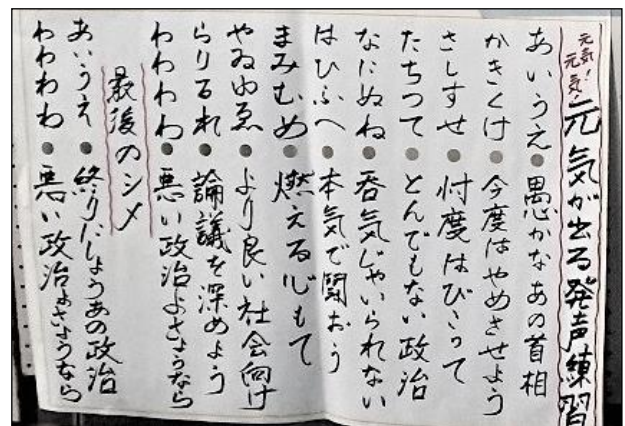 元気!
元気!
元気が出る発声練習
あいうえ●愚かなあの首相
かきくけ●今度はやめさせよう
さしすせ●忖度はびこって
たちつて●とんでもない政治
なにぬね●呑気じゃいられない
はひふへ●本気で闘おう
まみむめ●燃える心もて
やゐゆゑ●より良い社会向け
らりるれ●論議を深めよう
わわわわ●悪い政治よさようなら
最後のシメ
あいうえ●終りにしょうあの政治
わわわわ●悪い政治よさようなら